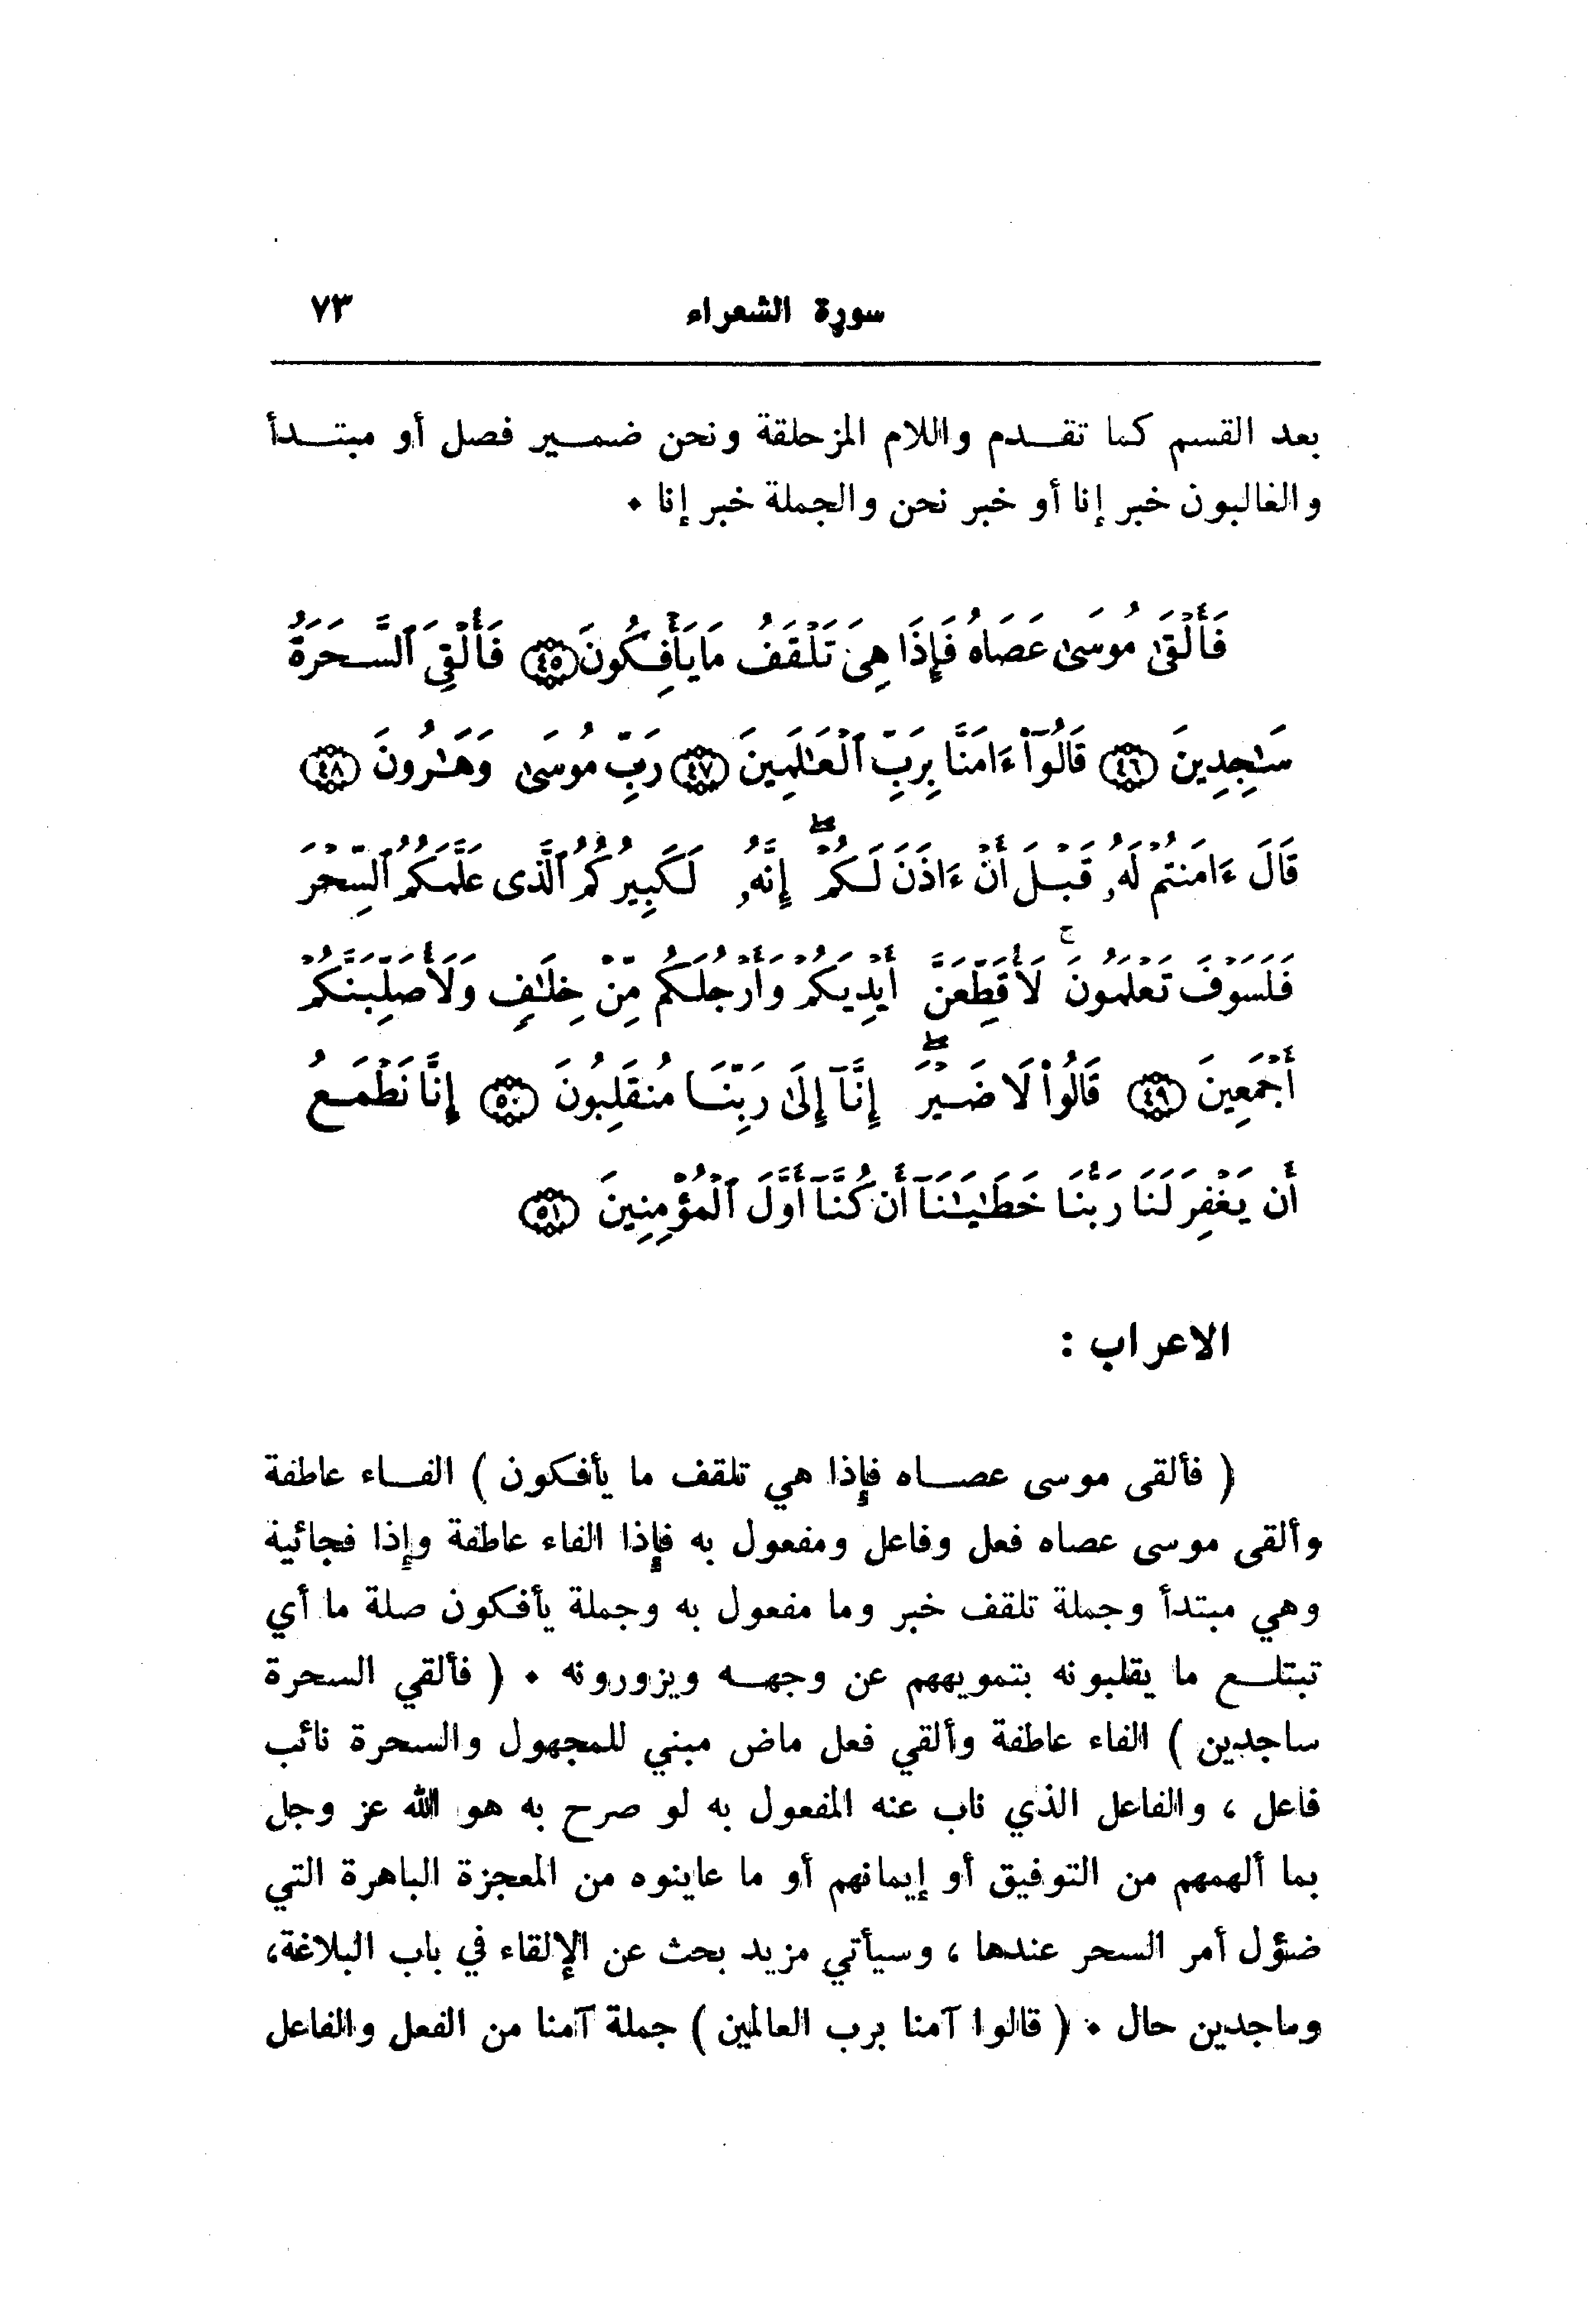 سورة الشعراء ٧٣
بعد القسم كما تقدم واللام المزحلقة ونحن ضمير فصل أو مبتدأ
والغالبون خبر إنا أو خبر نحن والجملة خبر إنا ٠
فَأَلْقَىٰ مُوسَىٰ عَصَاهُ فَإِذَا هِىَ تَلْقَفُ مَا يَأْفِكُونَ ٤٥ فَأُلْقِىَ ٱلسَّحَرَةُ
سَٰجِدِينَ ٤٦ قَالُوٓا۟ ءَامَنَّا بِرَبِّ ٱلْعَٰلَمِينَ ٤٧ رَبِّ مُوسَىٰ وَهَٰرُونَ ٤٨
قَالَ ءَامَنتُمْ لَهُۥ قَبْلَ أَنْ ءَاذَنَ لَكُمْ ۖ إِنَّهُۥ لَكَبِيرُكُمُ ٱلَّذِى عَلَّمَكُمُ ٱلسِّحْرَ
فَلَسَوْفَ تَعْلَمُونَ ۚ لَأُقَطِّعَنَّ أَيْدِيَكُمْ وَأَرْجُلَكُم مِّنْ خِلَٰفٍ وَلَأُصَلِّبَنَّكُمْ
أَجْمَعِينَ ٤٩ قَالُوا۟ لَا ضَيْرَ ۖ إِنَّآ إِلَىٰ رَبِّنَا مُنقَلِبُونَ ٥٠ إِنَّا نَطْمَعُ
أَن يَغْفِرَ لَنَا رَبُّنَا خَطَٰيَٰنَآ أَن كُنَّآ أَوَّلَ ٱلْمُؤْمِنِينَ ٥١
الاعراب :
( فألقى موسى عصاه فإذا هي تلقف ما يأفكون ) الفاء عاطفة
وألقى موسى عصاه فعل وفاعل ومفعول به فإذا الفاء عاطفة وإذا فجائية
وهي مبتدأ وجملة تلقف خبر وما مفعول به وجملة يأفكون صلة ما أي
تبتلع ما يقلبونه بتمويههم عن وجهه ويزورونه ٠ ( فألقي السحرة
ساجدين ) الفاء عاطفة وألقي فعل ماض مبني للمجهول والسحرة نائب
فاعل ، والفاعل الذي ناب عنه المفعول به لو صرح به هو الله عز وجل
بما ألهمهم من التوفيق أو إيمانهم أو ما عاينوه من المعجزة الباهرة التي
ضؤل أمر السحر عندها ، وسيأتي مزيد بحث عن الإلقاء في باب البلاغة،
وساجدين حال ٠ ( قالوا آمنا برب العالمين ) جملة آمنا من الفعل والفاعل